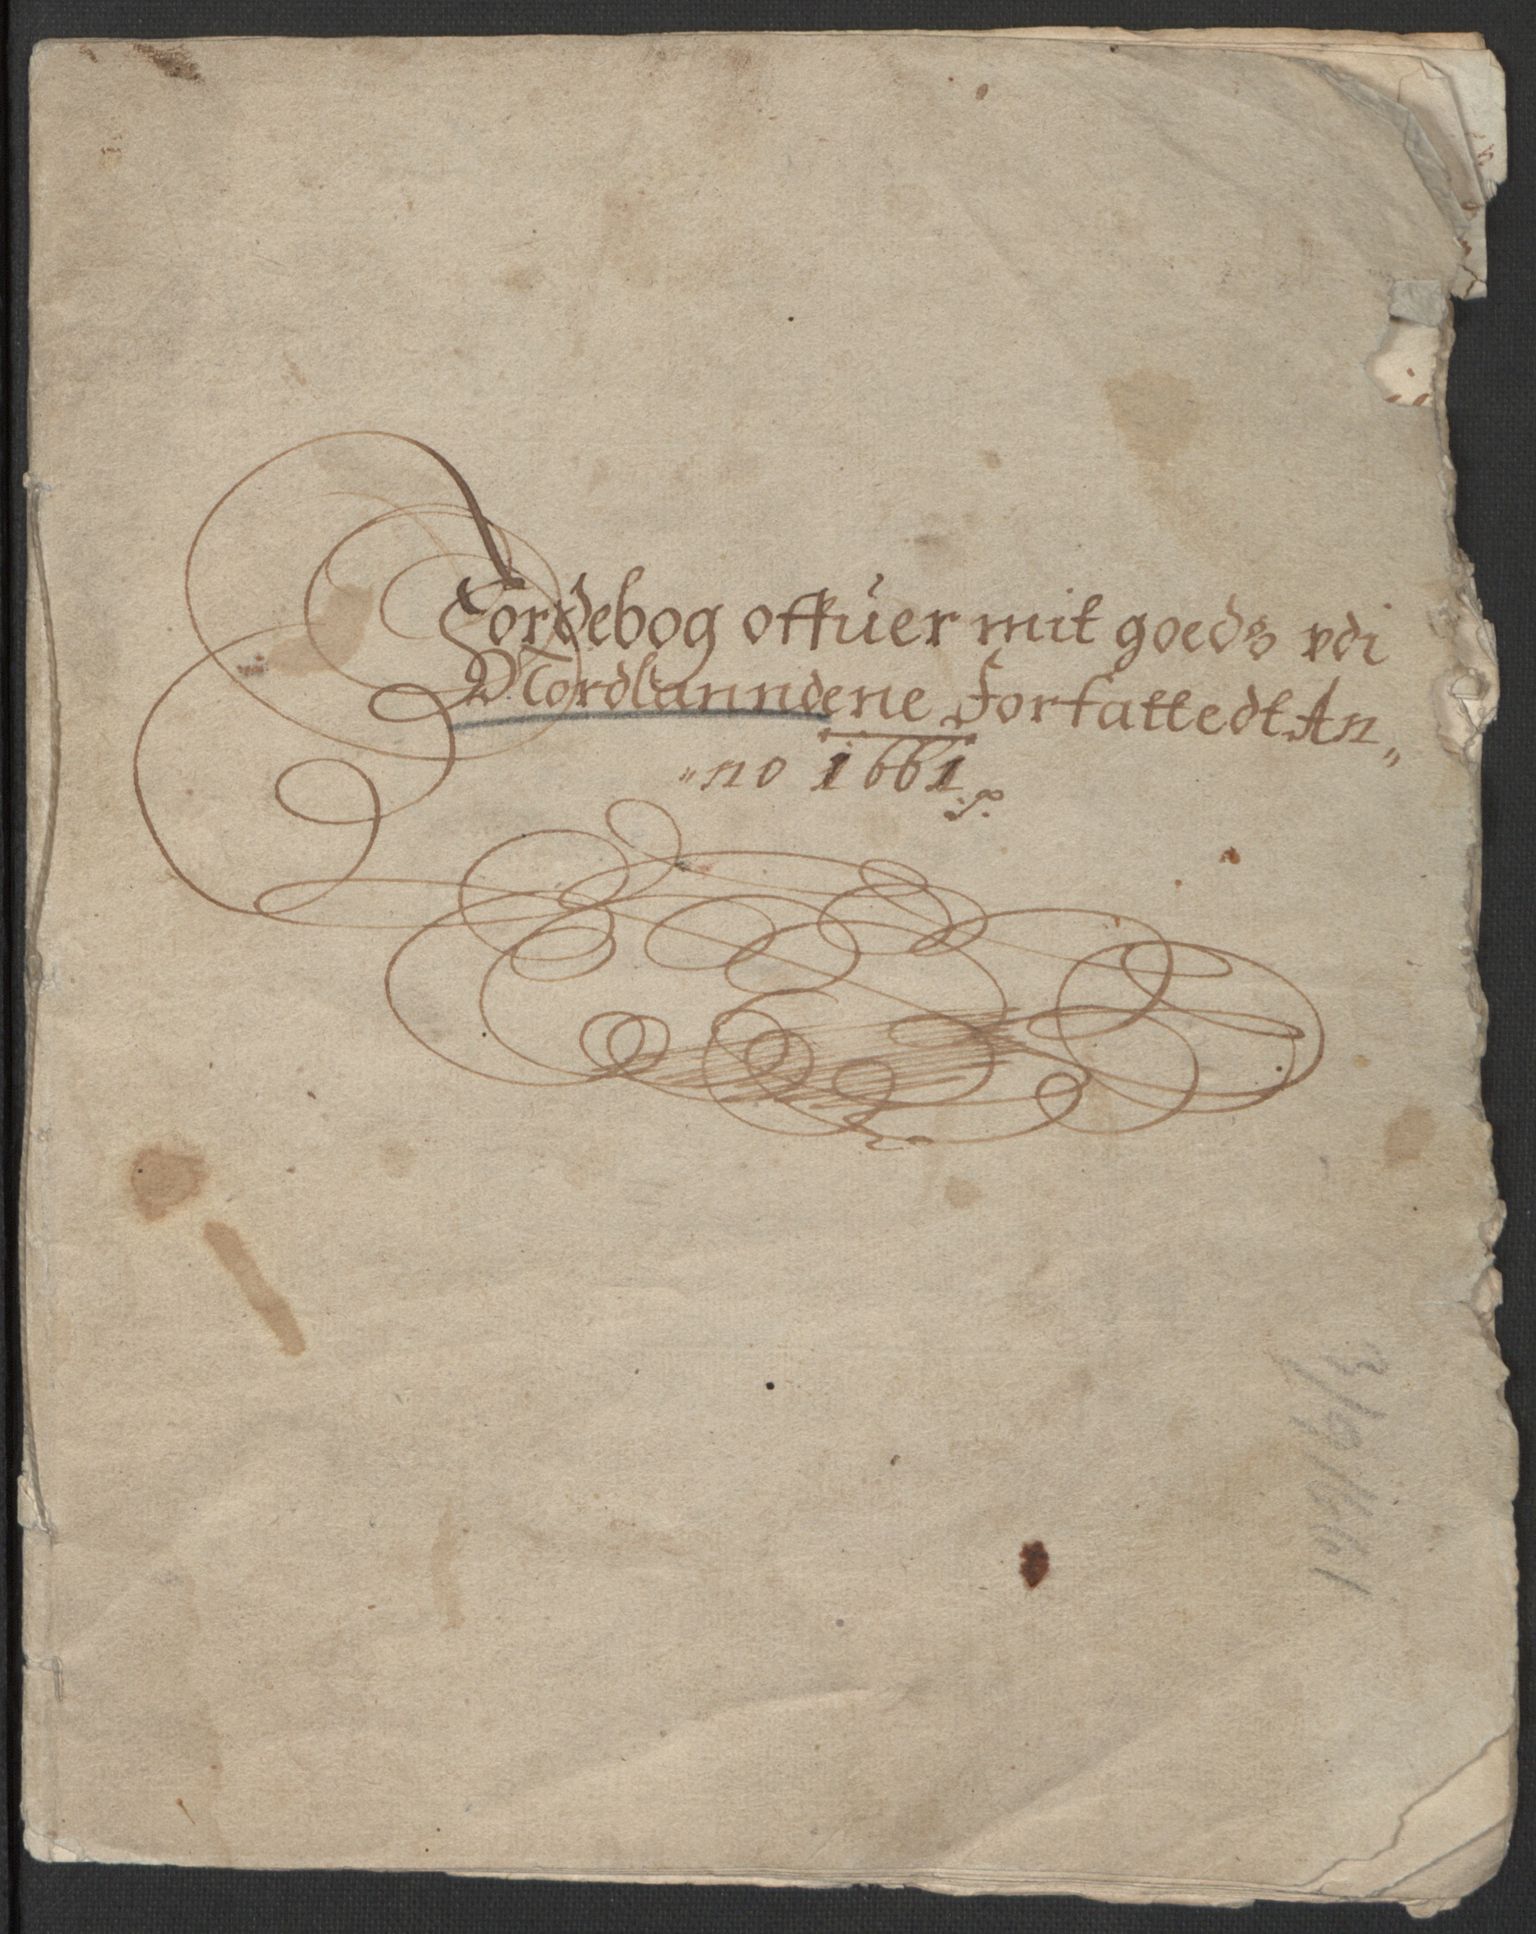 Jordebog offuer mit goeds vdi
Nordlanndene forfattedt An„
„no 1661